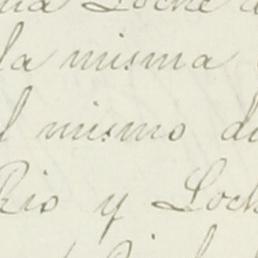 Loche
la misma
mismo
Rio y Loch